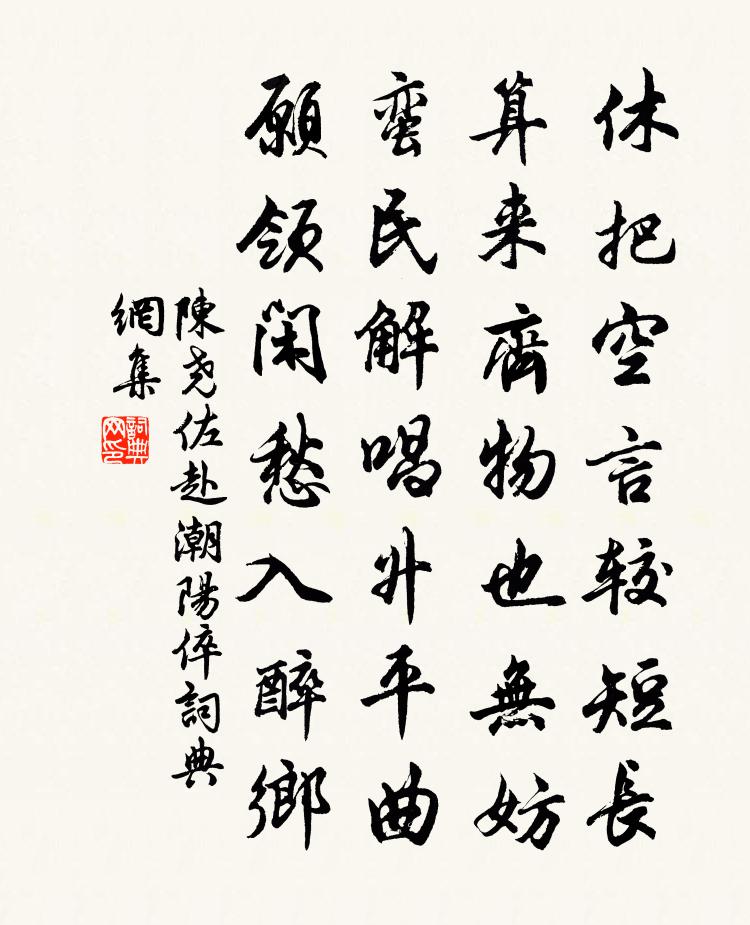 休把空言較短長
算来齊物也無妨
蛮民解唱升平曲
願領閑愁入醉鄉
陳堯佐赴潮陽倅詞典
網集
詞典
网印